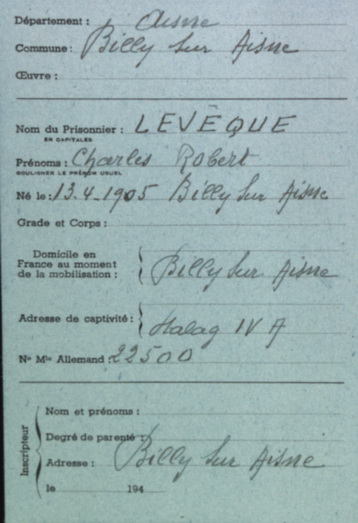 Département : Aisne
Commune : Billy sur Aisne
Œuvre :
Nom du Prisonnier : LEVÊQUE
EN CAPITALES
Prénoms : Charles Robert
SOULIGNER LE PRÉNOM USUEL
Né le : 13.4.1905 Billy sur Aisne
Grade et Corps :
Domicile en
France au moment
de la mobilisation : Billy sur Aisne
Adresse de captivité : Stalag IV A
No Mle Allemand : 22500
Inscripteur
Nom et prénoms :
Degré de parenté :
Adresse : Billy sur Aisne
le 194